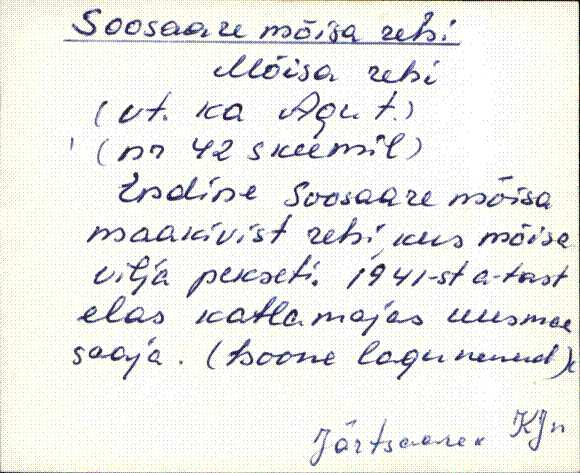 Soosaare mõisa rehi
Mõisa rehi
(vt. ka Agu t.)
(nr 42 skeemil)
Endine Soosaare mõisa
maakivist rehi, kus mõisa
vilja pekseti. 1941-st a-tast
elas katlamajas uusmaa
saaja. (hoone lagunenud)
Järtsaare KJn